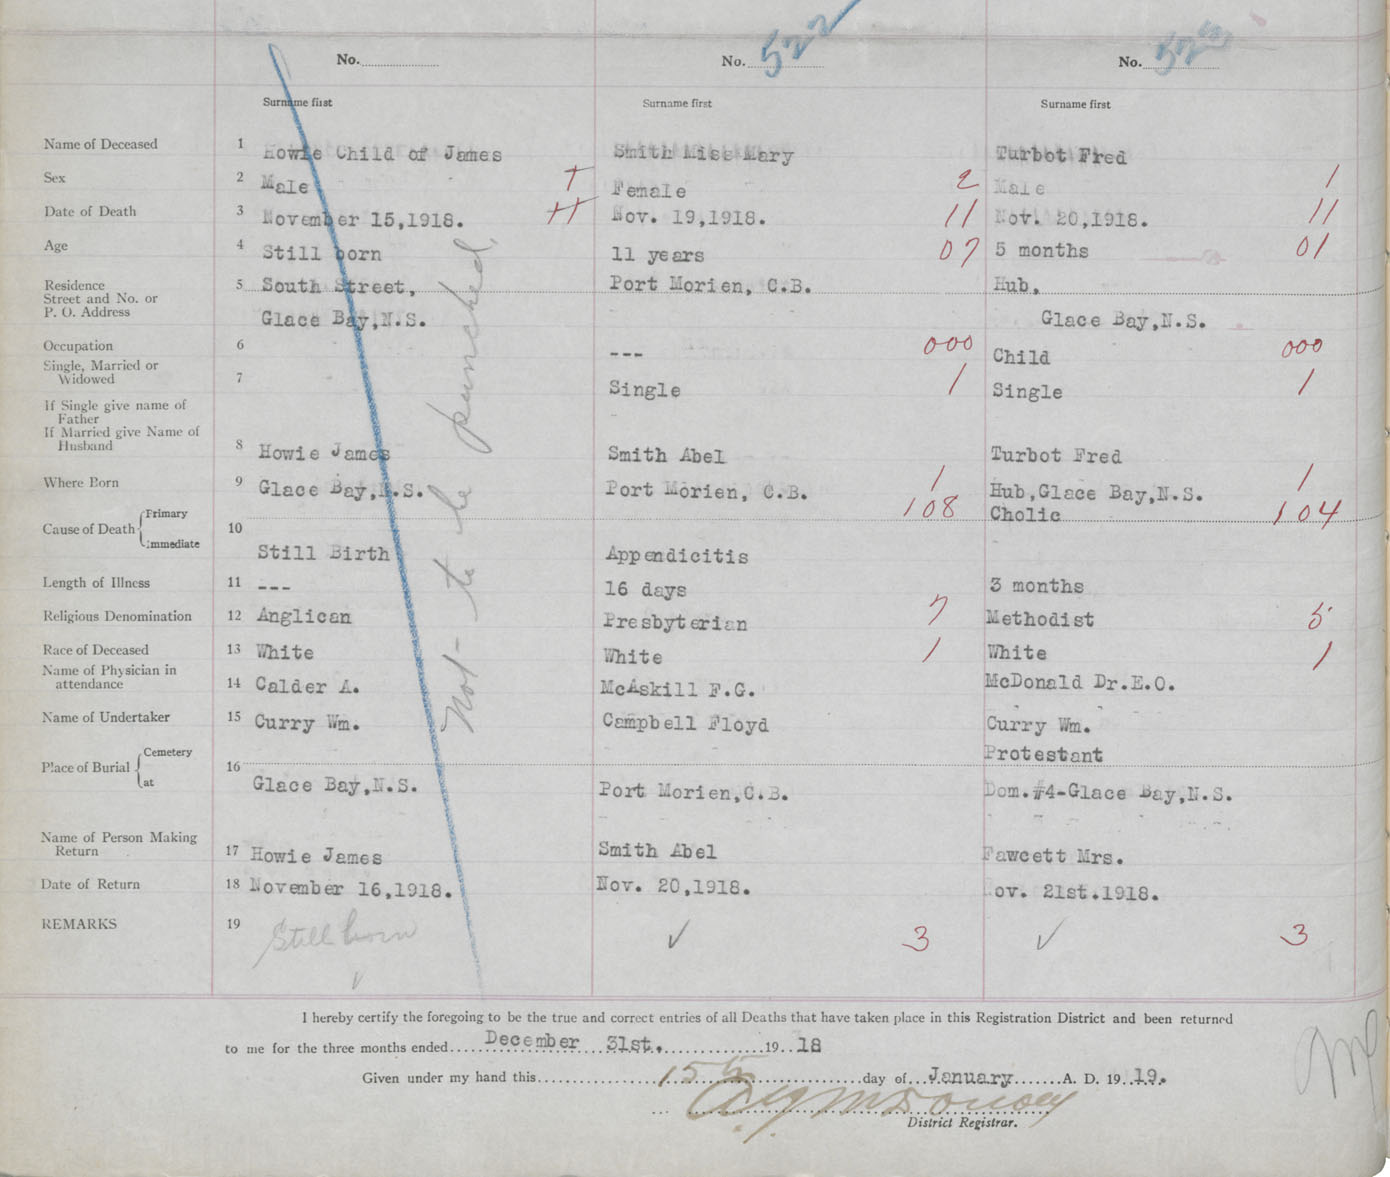 No.
No. 522
No. 523
Surname first
Surname first
Surname first
Name of Deceased 1 Howie Child of James Smith Miss Mary Turbot Fred
Sex 2 Male 1 Female 2 Male 1
Date of Death 3 November 15,1918. 11 Nov. 19,1918. 11 Nov. 20,1918. 11
Age 4 Still born 11 years 07 5 months 01
Residence 5 South Street, Port Morien, C.B. Hub,
Street and No. or
P. O. Address Glace Bay,N.S. Glace Bay,N.S.
Occupation 6 --- 000 Child 000
Single, Married or
Widowed 7 Single 1 Single 1
If Single give name of
Father
If Married give Name of
Husband 8 Howie James Smith Abel Turbot Fred
Where Born 9 Glace Bay,N.S. Port Morien, C.B. 1 Hub,Glace Bay,N.S. 1
Cause of Death { Primary 10 108 Cholic 104
Immediate Still Birth Appendicitis
Length of Illness 11 --- 16 days 3 months
Religious Denomination 12 Anglican Presbyterian 7 Methodist 5
Race of Deceased 13 White White 1 White 1
Name of Physician in
attendance 14 Calder A. McAskill F.G. McDonald Dr.E.O.
Name of Undertaker 15 Curry Wm. Campbell Floyd Curry Wm.
Place of Burial { Cemetery 16 Protestant
at Glace Bay,N.S. Port Morien,C.B. Dom.#4-Glace Bay,N.S.
Name of Person Making
Return 17 Howie James Smith Abel Fawcett Mrs.
Date of Return 18 November 16,1918. Nov. 20,1918. Nov. 21st.1918.
REMARKS 19 Still born ✓ 3 ✓ 3
✓
Not to be punched.
I hereby certify the foregoing to be the true and correct entries of all Deaths that have taken place in this Registration District and been returned
to me for the three months ended December 31st. 19 18
Given under my hand this 15th day of January A. D. 19 19.
District Registrar.